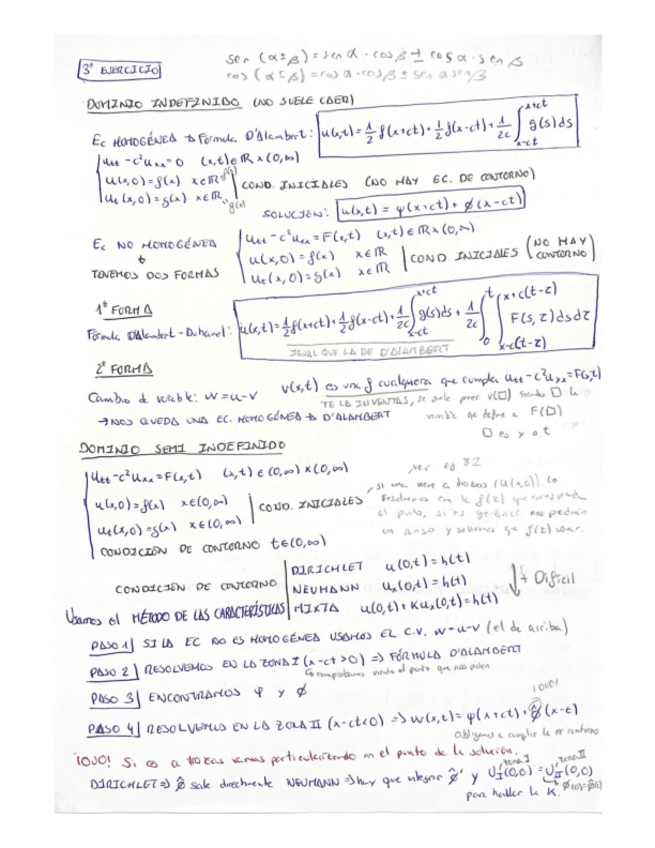 3º EJERCICIO
sen (α±β) = sen α · cos β ± cos α · sen β
cos (α±β) = cos α · cos β ± sen α sen β
DOMINIO INDEFINIDO (NO SUELE CAER)
Ec HOMOGÉNEA → Fórmula D'Alambert: u(x,t) = 1/2 f(x+ct) + 1/2 f(x-ct) + 1/2c ∫_{x-ct}^{x+ct} g(s) ds
utt - c²uxx = 0 (x,t) ∈ R × (0,∞)
u(x,0) = f(x) x ∈ R
ut(x,0) = g(x) x ∈ R
COND. INICIALES (NO HAY EC. DE CONTORNO)
SOLUCIÓN: u(x,t) = φ(x+ct) + ø(x-ct)
Ec NO HOMOGÉNEA
TENEMOS DOS FORMAS
utt - c²uxx = F(x,t) (x,t) ∈ R × (0,∞)
u(x,0) = f(x) x ∈ R
ut(x,0) = g(x) x ∈ R
COND. INICIALES (NO HAY CONTORNO)
1ª FORMA
Fórmula D'Alambert-Duhamel: u(x,t) = 1/2 f(x+ct) + 1/2 f(x-ct) + 1/2c ∫_{x-ct}^{x+ct} g(s) ds + 1/2c ∫_0^t ∫_{x-c(t-z)}^{x+c(t-z)} F(s,z) ds dz
IGUAL QUE LA DE D'ALAMBERT
2ª FORMA
Cambio de variable: w = u-v v(x,t) es una f cualquiera que cumpla utt - c²uxx = F(x,t)
TE LA INVENTAS, se suele poner v(□) siendo □ la
→ NOS QUEDA UNA EC. HOMOGÉNEA → D'ALAMBERT variable que define a F(□)
□ es x o t
DOMINIO SEMI INDEFINIDO
utt - c²uxx = F(x,t) (x,t) ∈ (0,∞) × (0,∞)
u(x,0) = f(x) x ∈ (0,∞)
ut(x,0) = g(x) x ∈ (0,∞)
COND. INICIALES
CONDICIÓN DE CONTORNO t ∈ (0,∞)
ver ej 82
CONDICIÓN DE CONTORNO
DIRICHLET u(0,t) = h(t)
NEUMANN ux(0,t) = h(t)
MIXTA u(0,t) + Kux(0,t) = h(t)
↓ + Difícil
Usamos el MÉTODO DE LAS CARACTERÍSTICAS
PASO 1 | SI LA EC NO ES HOMOGÉNEA USAMOS EL C.V. w = u-v (el de arriba)
PASO 2 | RESOLVEMOS EN LA ZONA I (x-ct>0) ⇒ FÓRMULA D'ALAMBERT
↳ comprobamos viendo el punto que nos piden
PASO 3 | ENCONTRAMOS φ y ø
¡OJO!
PASO 4 | RESOLVEMOS EN LA ZONA II (x-ct<0) ⇒ w(x,t) = φ(x+ct) + ø̂(x-t)
Obligamos a cumplir la ec contorno
¡OJO! Si es a trozos vamos particularizando en el punto de la solución.
DIRICHLET ⇒ ø̂ sale directamente NEUMANN ⇒ hay que integrar ø̂' y U_I(0,0) = U_II(0,0)
zona I zona II
para hallar la K.